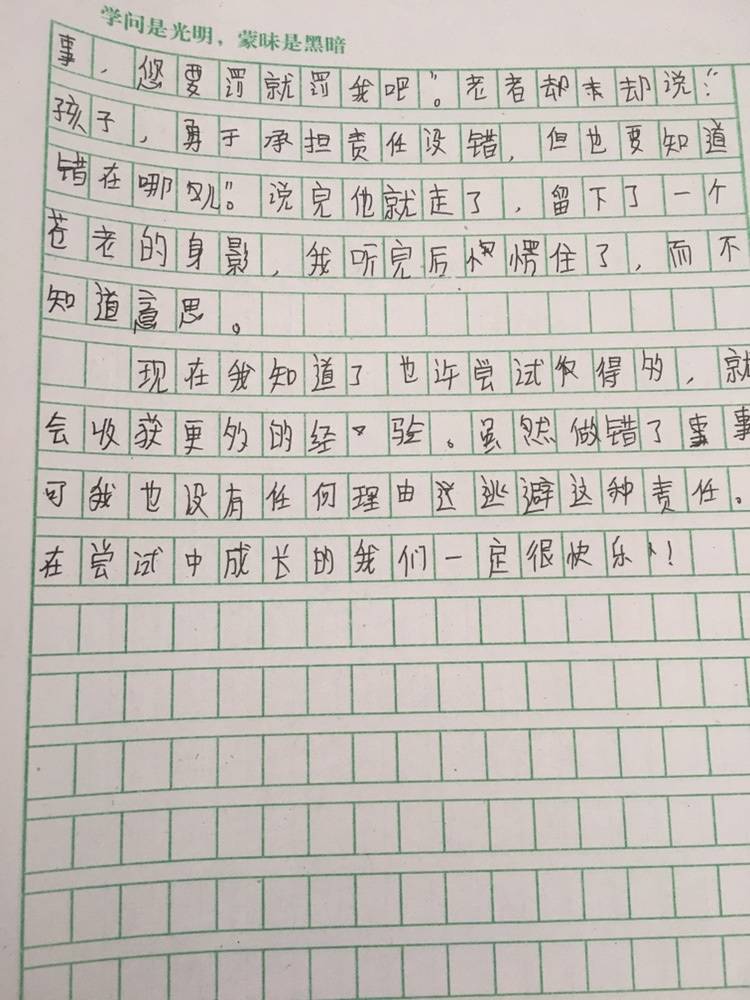 学问是光明，蒙昧是黑暗
事，您要罚就罚我吧”。老者却未却说：“
孩子，勇于承担责任没错，但也要知道
错在哪儿”。说完他就走了，留下了一个
苍老的身影，我听完后愣住了，而不
知道意思。
现在我知道了也许尝试得多，就
会收获更多的经验。虽然做错了事事
可我也没有任何理由逃避这种责任。
在尝试中成长的我们一定很快乐！